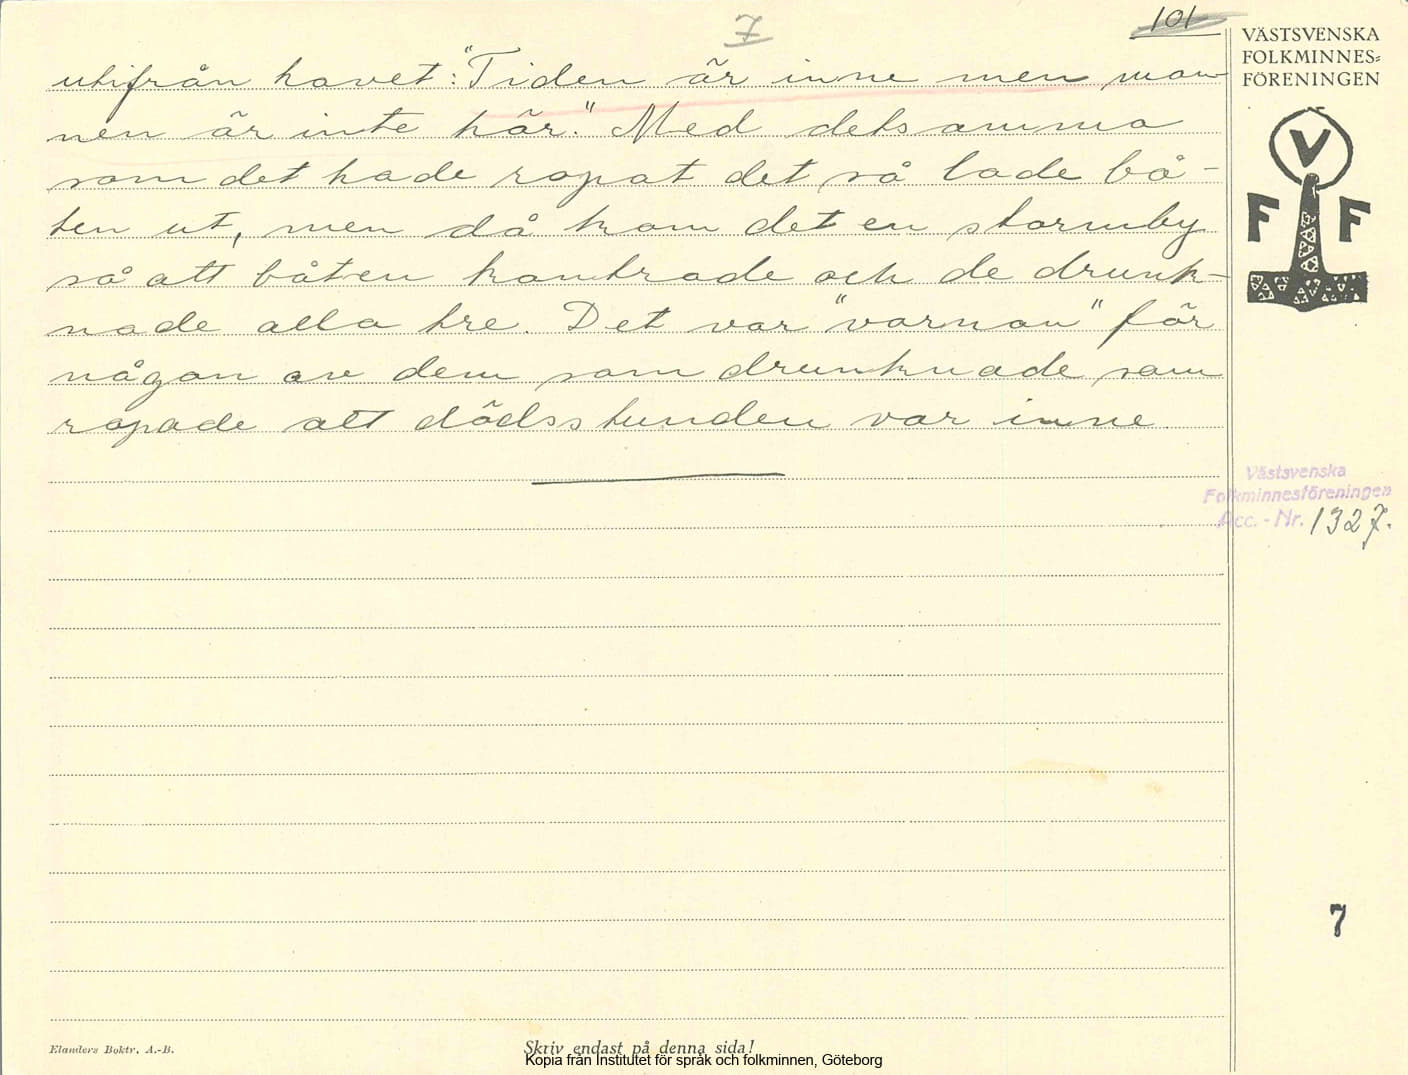 7
101
utifrån havet: "Tiden är inne men man-
nen är inte här." Med detsamma
som det hade ropat det så lade bå-
ten ut, men då kom det en stormby
så att båten kantrade och de drunk-
nade alla tre. Det var "varnan" för
någon av dem som drunknade som
ropade att dödsstunden var inne.
VÄSTSVENSKA
FOLKMINNES=
FÖRENINGEN
V
F F
Västsvenska
Folkminnesföreningen
Acc. - Nr. 1327.
7
Elanders Boktr. A.-B.
Skriv endast på denna sida!
Kopia från Institutet för språk och folkminnen, Göteborg